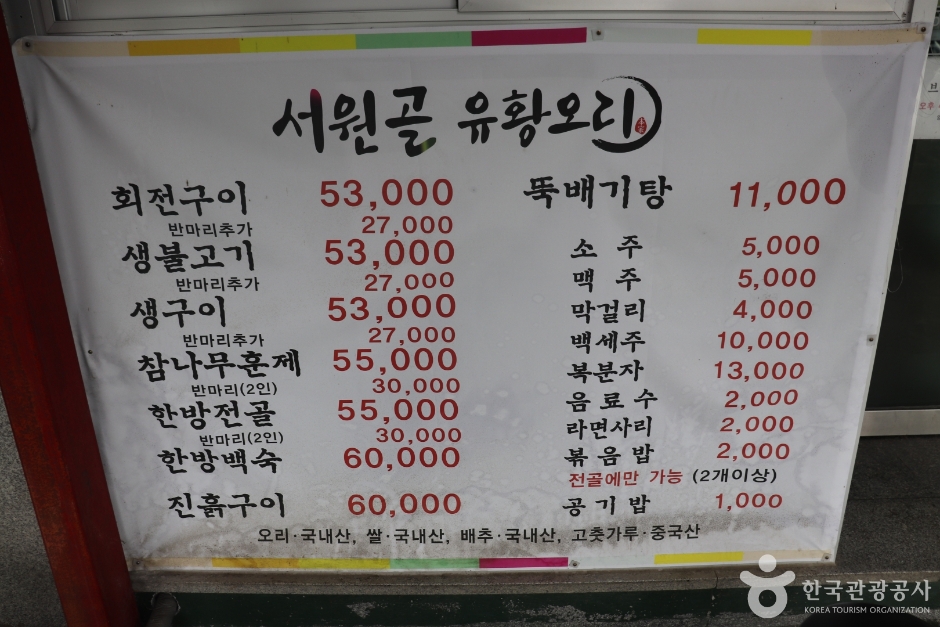 서원골 유황오리
회전구이 53,000
반마리추가 27,000
생불고기 53,000
반마리추가 27,000
생구이 53,000
반마리추가 27,000
참나무훈제 55,000
반마리(2인) 30,000
한방전골 55,000
반마리(2인) 30,000
한방백숙 60,000
진흙구이 60,000
뚝배기탕 11,000
소주 5,000
맥주 5,000
막걸리 4,000
백세주 10,000
복분자 13,000
음료수 2,000
라면사리 2,000
볶음밥 2,000
전골에만 가능 (2개이상)
공기밥 1,000
오리·국내산, 쌀·국내산, 배추·국내산, 고춧가루·중국산
한국관광공사
KOREA TOURISM ORGANIZATION